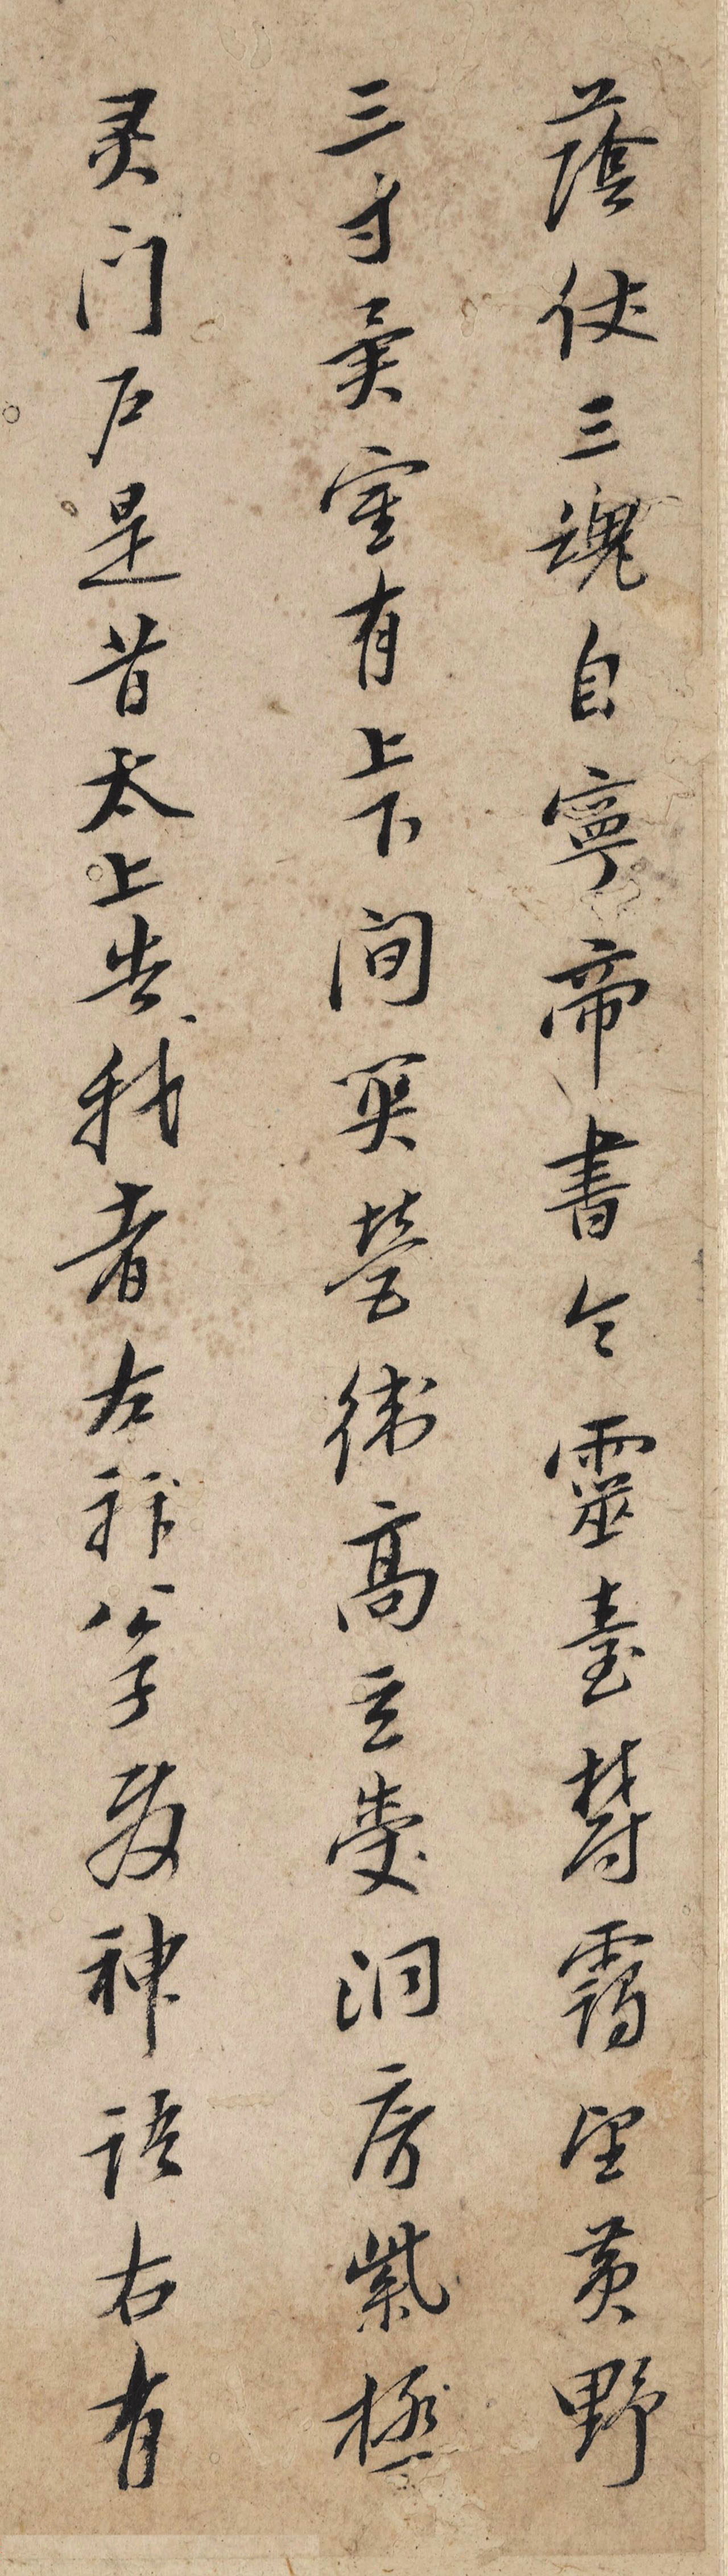 蔭仗三魂自寧帝書命靈臺鬱靄望黃野
三寸異室有上下間關營衛高玄受洞房紫極
灵門戶是昔太上告我者左神公子發神語右有